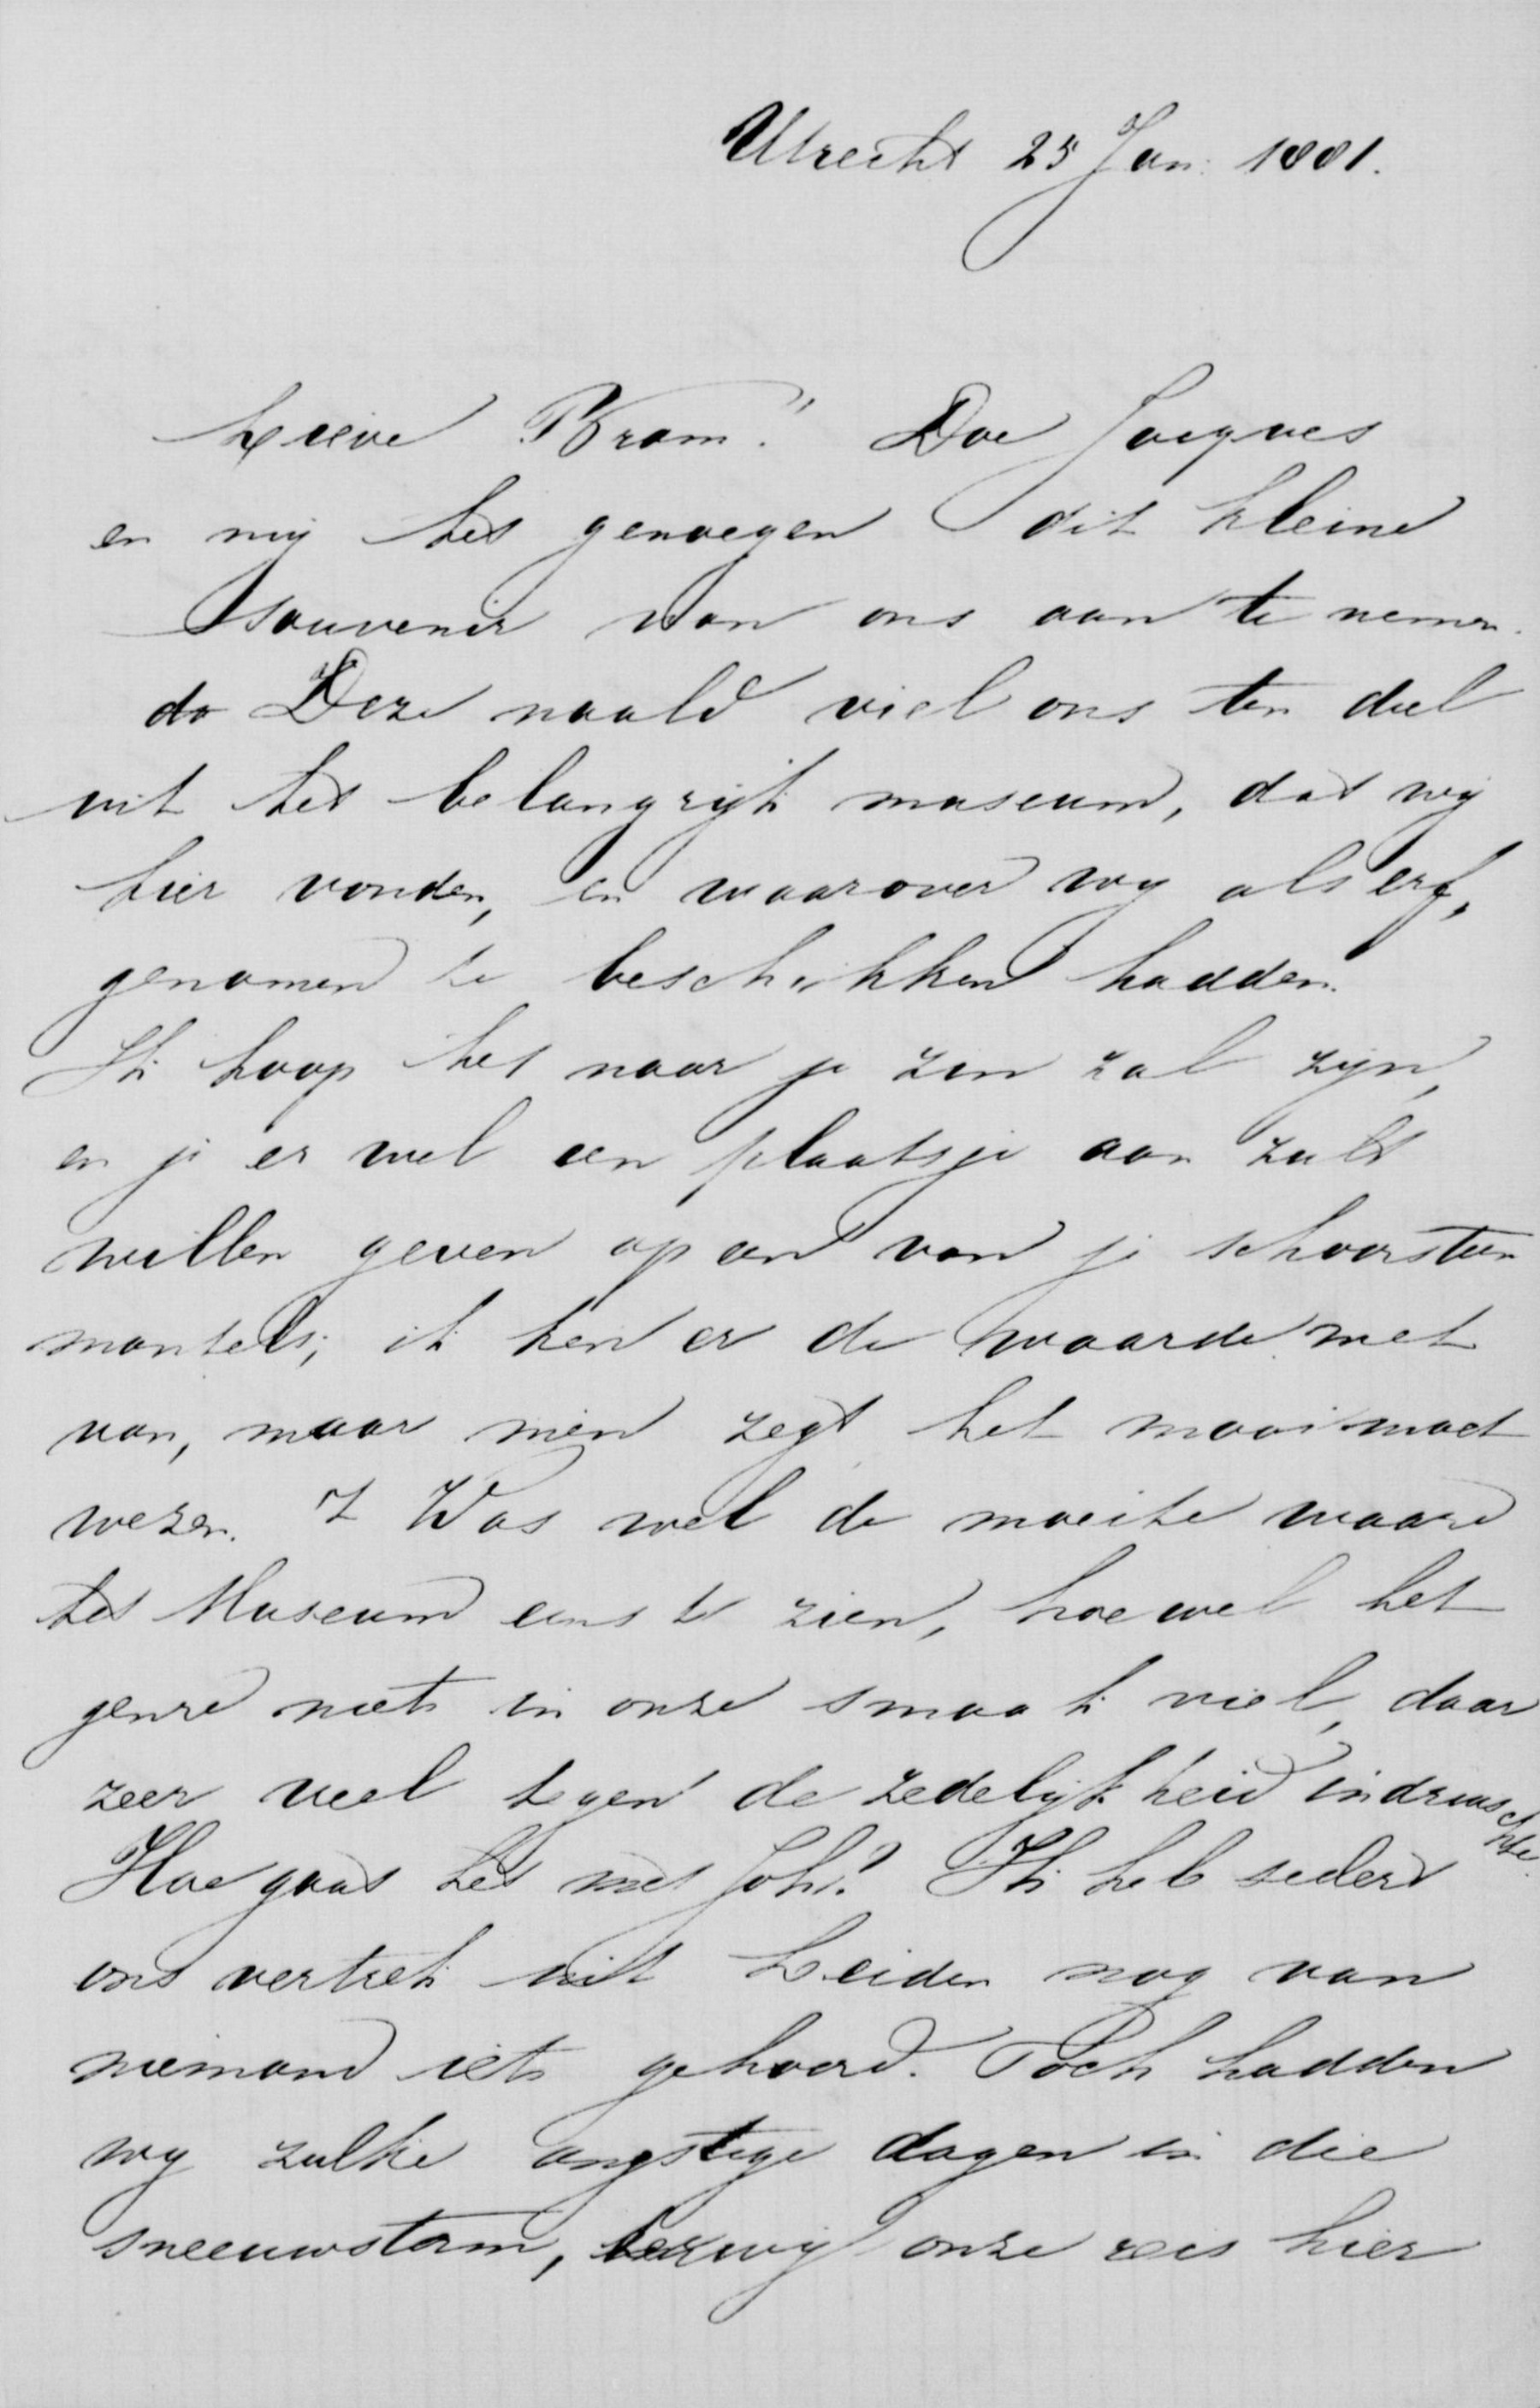 Utrecht 25 Jan. 1881.
Lieve Bram! Doe Jacques
en mij het genoegen dit kleine
souvenir van ons aan te nemen.
Deze naald viel ons ten deel
uit het belangrijk museum, dat wij
hier vonden, en waarover wij als erf,
genamen te beschikken hadden.
Ik hoop het naar je zin zal zijn,
en je er wel een plaatsje aan zult
willen geven op een van je schoorsteen
mantels; ik ken er de waarde niet
van, maar men zegt het mooi moet
wezen. 't Was wel de moeite waard
het Museum eens te zien, hoewel het
genre niet in onze smaak viel, daar
zeer veel tegen de zedelijkheid indruischte.
Hoe gaat het met Joh? Ik heb sedert
ons vertrek uit Leiden nog van
niemand iets gehoord. Toch hadden
wij zulke angstige dagen in die
sneeuwstorm, terwijl onze reis hier